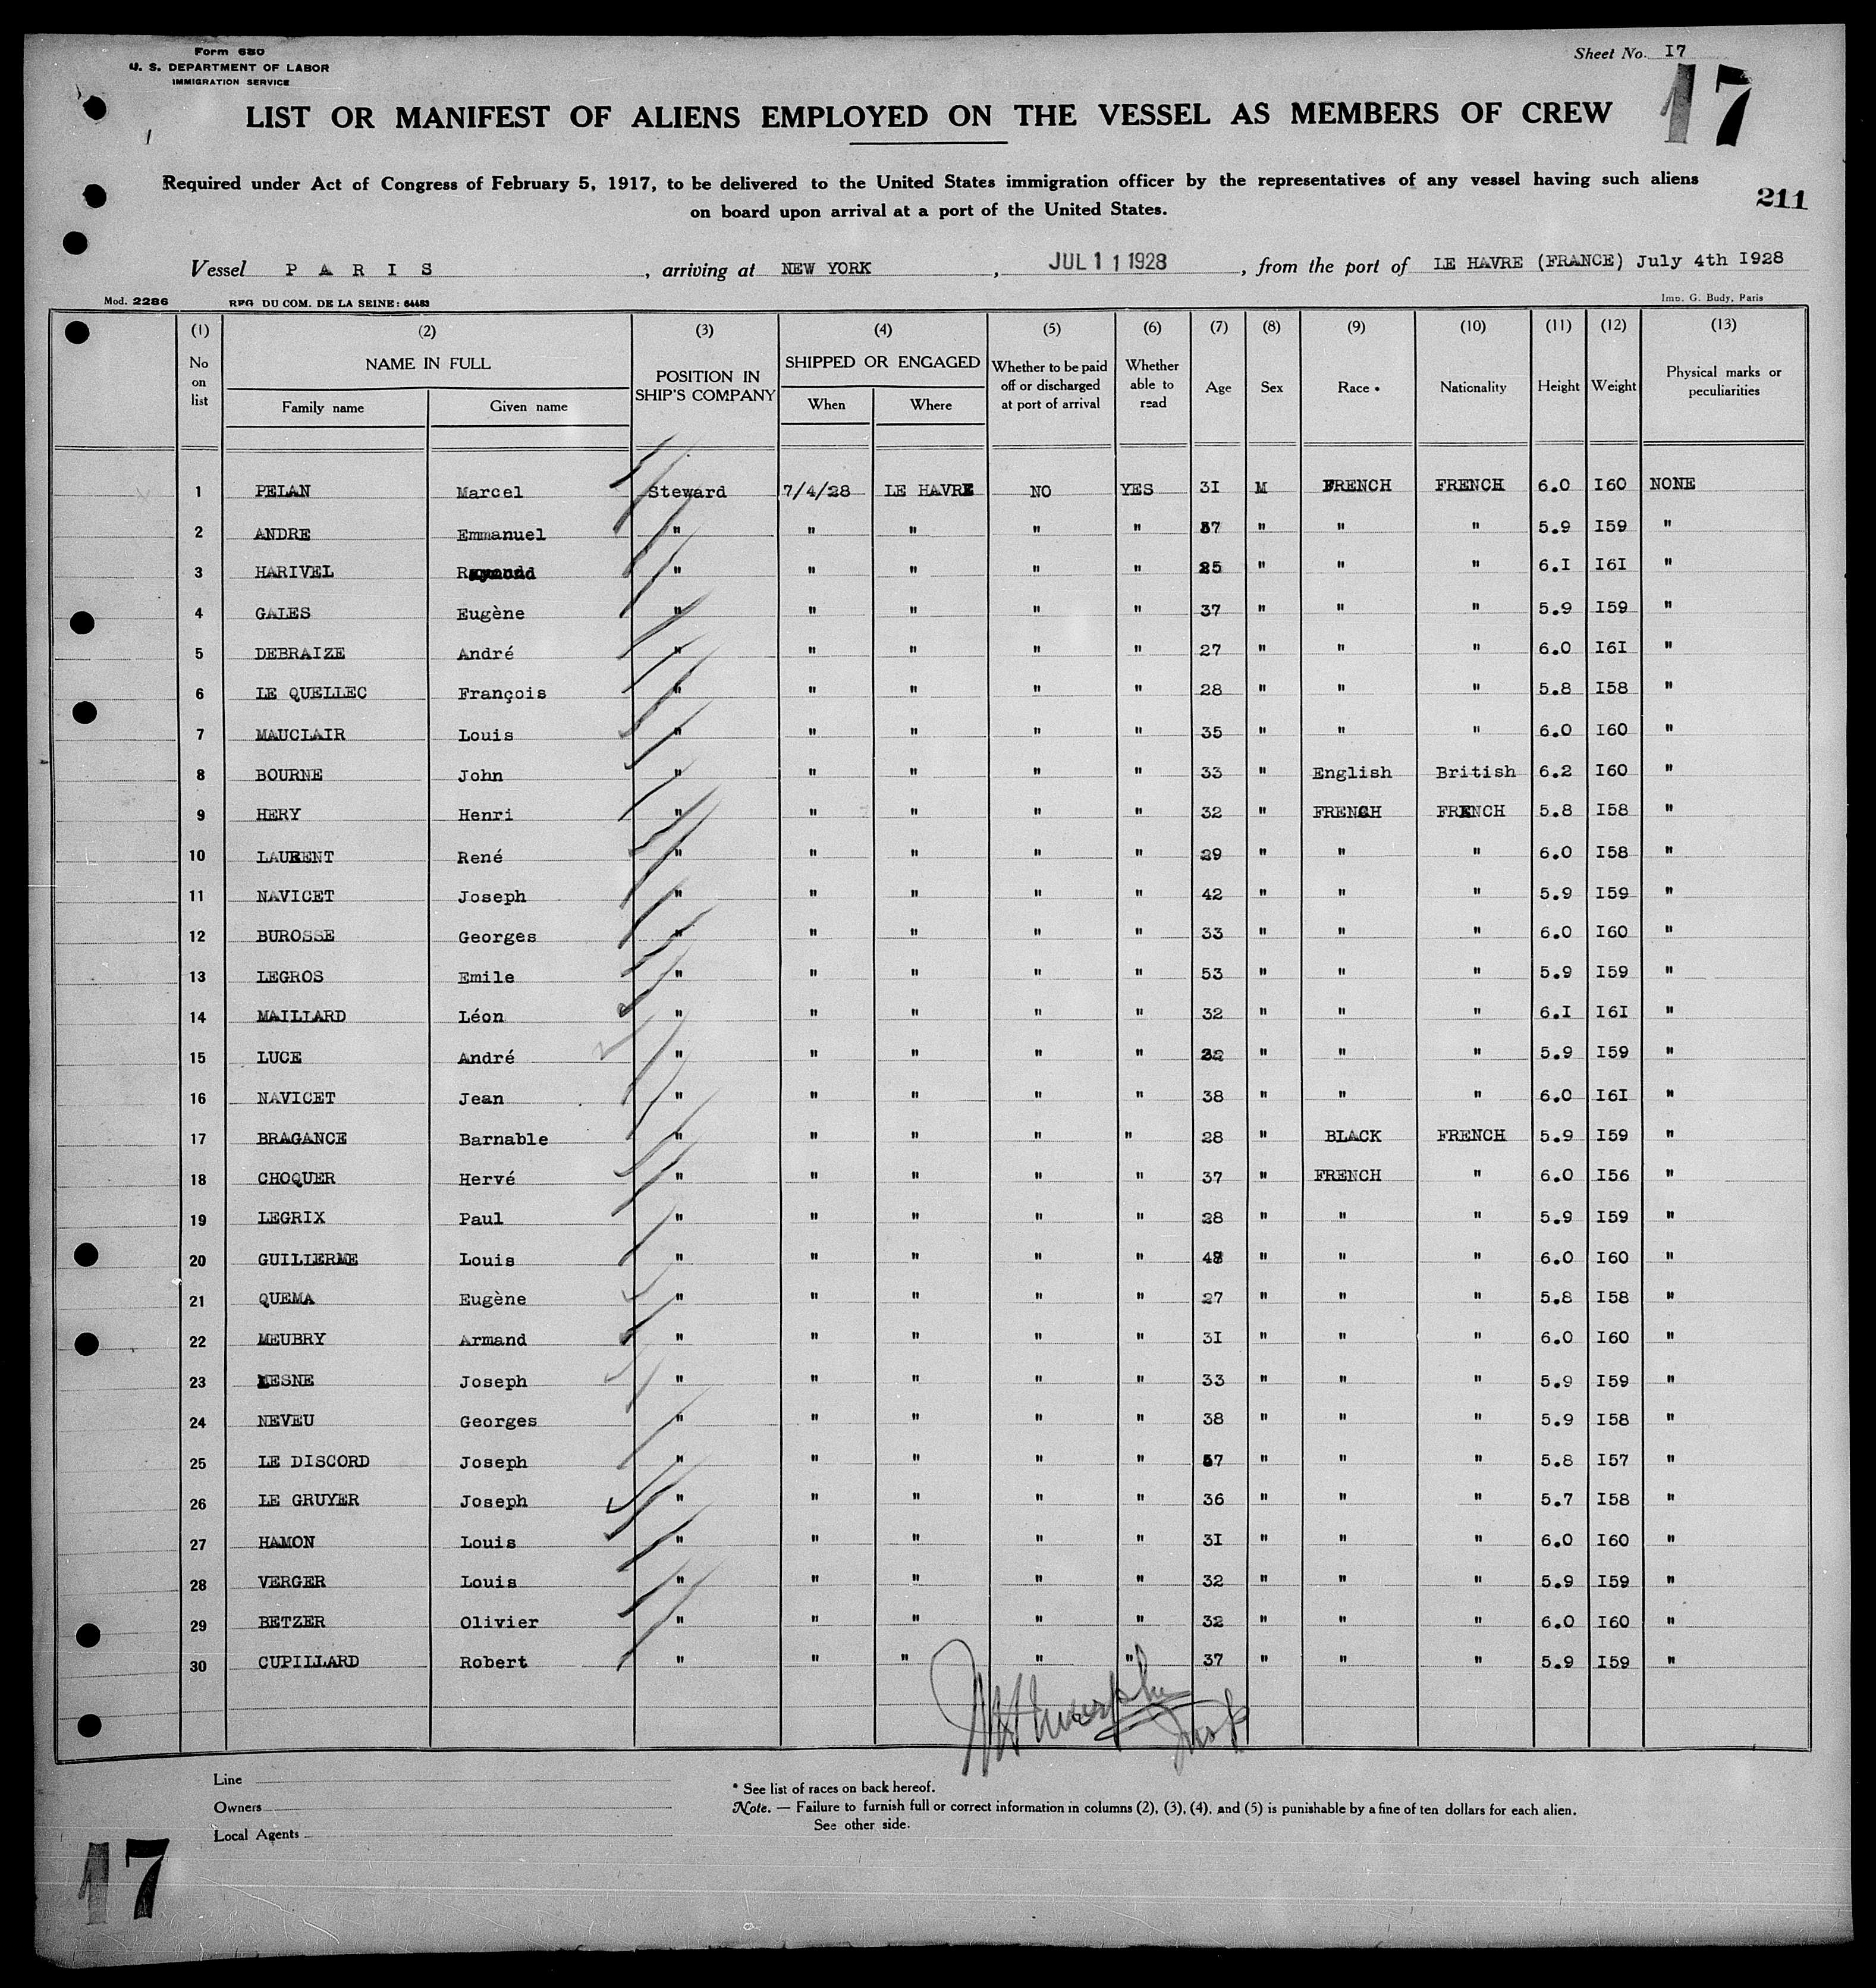 Form 680
U. S. DEPARTMENT OF LABOR
IMMIGRATION SERVICE
Sheet No. I7
17
LIST OR MANIFEST OF ALIENS EMPLOYED ON THE VESSEL AS MEMBERS OF CREW
Required under Act of Congress of February 5, 1917, to be delivered to the United States immigration officer by the representatives of any vessel having such aliens
on board upon arrival at a port of the United States.
211
Vessel P A R I S , arriving at NEW YORK , JUL 1 1 1928 , from the port of LE HAVRE (FRANCE) July 4th I928
Mod. 2286 REG DU COM. DE LA SEINE: 64483 Imp. G. Budy, Paris
(1) (2) (3) (4) (5) (6) (7) (8) (9) (10) (11) (12) (13)
No on list NAME IN FULL Family name Given name POSITION IN SHIP'S COMPANY SHIPPED OR ENGAGED When Where Whether to be paid off or discharged at port of arrival Whether able to read Age Sex Race * Nationality Height Weight Physical marks or peculiarities
1 PELAN Marcel Steward 7/4/28 LE HAVRE NO YES 3I M FRENCH FRENCH 6.0 I60 NONE
2 ANDRE Emmanuel " " " " " 37 " " " 5.9 I59 "
3 HARIVEL Raymond " " " " " 25 " " " 6.I I6I "
4 GALES Eugène " " " " " 37 " " " 5.9 I59 "
5 DEBRAIZE André " " " " " 27 " " " 6.0 I6I "
6 LE QUELLEC François " " " " " 28 " " " 5.8 I58 "
7 MAUCLAIR Louis " " " " " 35 " " " 6.0 I60 "
8 BOURNE John " " " " " 33 " English British 6.2 I60 "
9 HERY Henri " " " " " 32 " FRENCH FRENCH 5.8 I58 "
10 LAURENT René " " " " " 29 " " " 6.0 I58 "
11 NAVICET Joseph " " " " " 42 " " " 5.9 I59 "
12 BUROSSE Georges " " " " " 33 " " " 6.0 I60 "
13 LEGROS Emile " " " " " 53 " " " 5.9 I59 "
14 MAILLARD Léon " " " " " 32 " " " 6.I I6I "
15 LUCE André " " " " " " " " 5.9 I59 "
16 NAVICET Jean " " " " " 38 " " " 6.0 I6I "
17 BRAGANCE Barnable " " " " " 28 " BLACK FRENCH 5.9 I59 "
18 CHOQUER Hervé " " " " " 37 " FRENCH " 6.0 I56 "
19 LEGRIX Paul " " " " " 28 " " " 5.9 I59 "
20 GUILLERME Louis " " " " " " " " 6.0 I60 "
21 QUEMA Eugène " " " " " 27 " " " 5.8 I58 "
22 MEUBRY Armand " " " " " 3I " " " 6.0 I60 "
23 MESNE Joseph " " " " " 33 " " " 5.9 I59 "
24 NEVEU Georges " " " " " 38 " " " 5.9 I58 "
25 LE DISCORD Joseph " " " " " " " " 5.8 I57 "
26 LE GRUYER Joseph " " " " " 36 " " " 5.7 I58 "
27 HAMON Louis " " " " " 3I " " " 6.0 I60 "
28 VERGER Louis " " " " " 32 " " " 5.9 I59 "
29 BETZER Olivier " " " " " 32 " " " 6.0 I60 "
30 CUPILLARD Robert " " " " " 37 " " " 5.9 I59 "
Line
Owners
Local Agents
* See list of races on back hereof.
Note. — Failure to furnish full or correct information in columns (2), (3), (4), and (5) is punishable by a fine of ten dollars for each alien.
See other side.
17